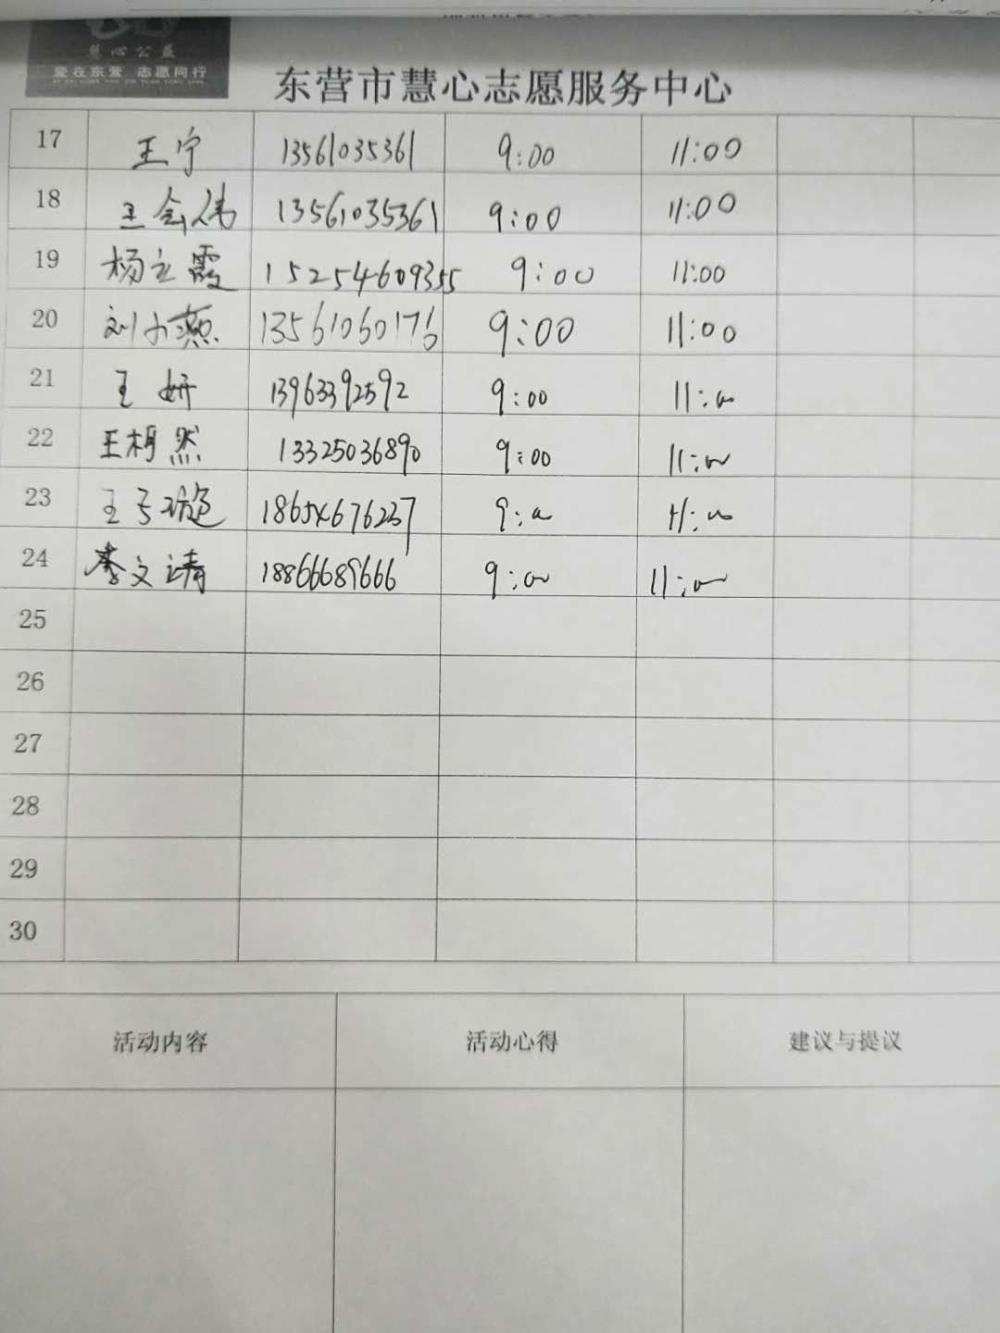 慧心公益
爱在东营 志愿同行
东营市慧心志愿服务中心
17 王宁 13561035361 9:00 11:00
18 王会伟 13561035361 9:00 11:00
19 杨立霞 15254609355 9:00 11:00
20 刘小燕 13561060176 9:00 11:00
21 王妍 13963392592 9:00 11:00
22 王相然 13325036890 9:00 11:00
23 王 9:00 11:00
24 李文靖 18866689666 9:00 11:00
25
26
27
28
29
30
活动内容 活动心得 建议与提议